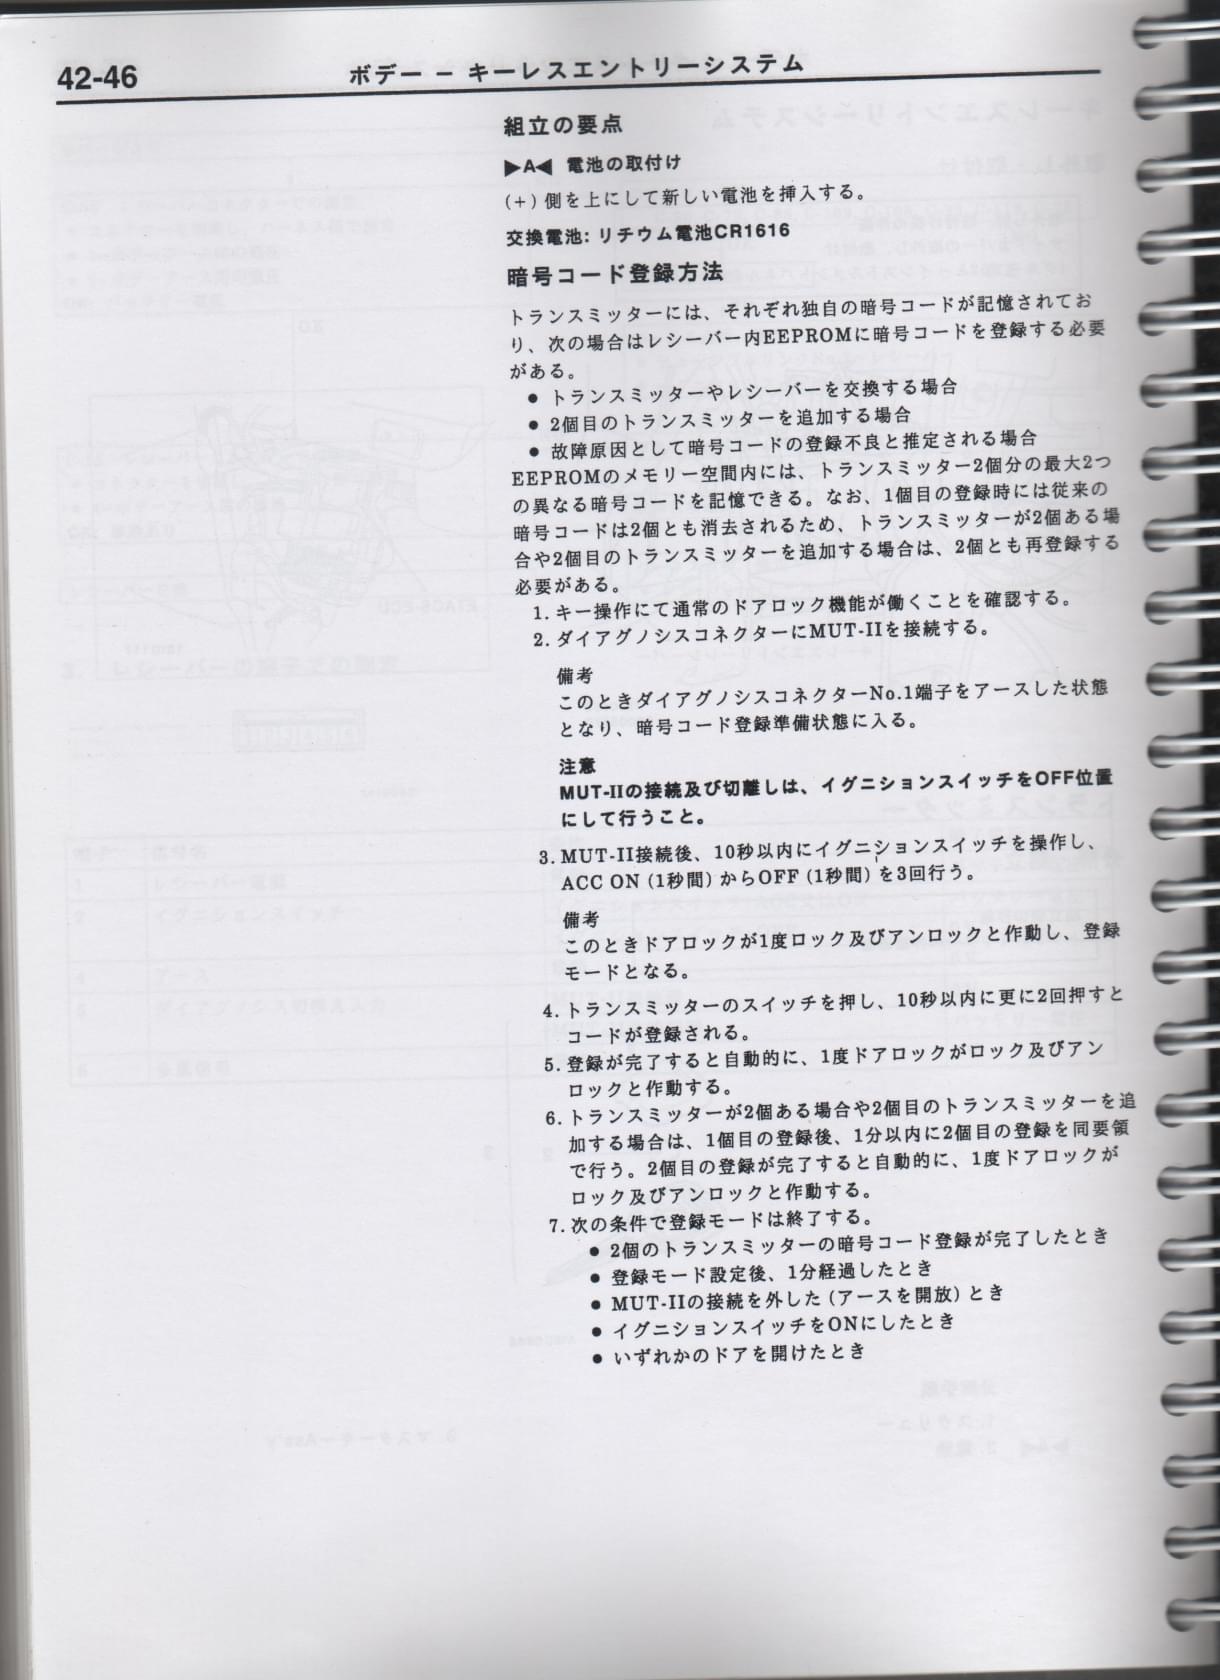 42-46
ボデー － キーレスエントリーシステム
組立の要点
▶A◀ 電池の取付け
(+) 側を上にして新しい電池を挿入する。
交換電池: リチウム電池CR1616
暗号コード登録方法
トランスミッターには、それぞれ独自の暗号コードが記憶されてお
り、次の場合はレシーバー内EEPROMに暗号コードを登録する必要
がある。
● トランスミッターやレシーバーを交換する場合
● 2個目のトランスミッターを追加する場合
● 故障原因として暗号コードの登録不良と推定される場合
EEPROMのメモリー空間内には、トランスミッター2個分の最大2つ
の異なる暗号コードを記憶できる。なお、1個目の登録時には従来の
暗号コードは2個とも消去されるため、トランスミッターが2個ある場
合や2個目のトランスミッターを追加する場合は、2個とも再登録する
必要がある。
1. キー操作にて通常のドアロック機能が働くことを確認する。
2. ダイアグノシスコネクターにMUT-IIを接続する。
備考
このときダイアグノシスコネクターNo.1端子をアースした状態
となり、暗号コード登録準備状態に入る。
注意
MUT-IIの接続及び切離しは、イグニションスイッチをOFF位置
にして行うこと。
3. MUT-II接続後、10秒以内にイグニションスイッチを操作し、
ACC ON (1秒間) からOFF (1秒間) を3回行う。
備考
このときドアロックが1度ロック及びアンロックと作動し、登録
モードとなる。
4. トランスミッターのスイッチを押し、10秒以内に更に2回押すと
コードが登録される。
5. 登録が完了すると自動的に、1度ドアロックがロック及びアン
ロックと作動する。
6. トランスミッターが2個ある場合や2個目のトランスミッターを追
加する場合は、1個目の登録後、1分以内に2個目の登録を同要領
で行う。2個目の登録が完了すると自動的に、1度ドアロックが
ロック及びアンロックと作動する。
7. 次の条件で登録モードは終了する。
● 2個のトランスミッターの暗号コード登録が完了したとき
● 登録モード設定後、1分経過したとき
● MUT-IIの接続を外した (アースを開放) とき
● イグニションスイッチをONにしたとき
● いずれかのドアを開けたとき